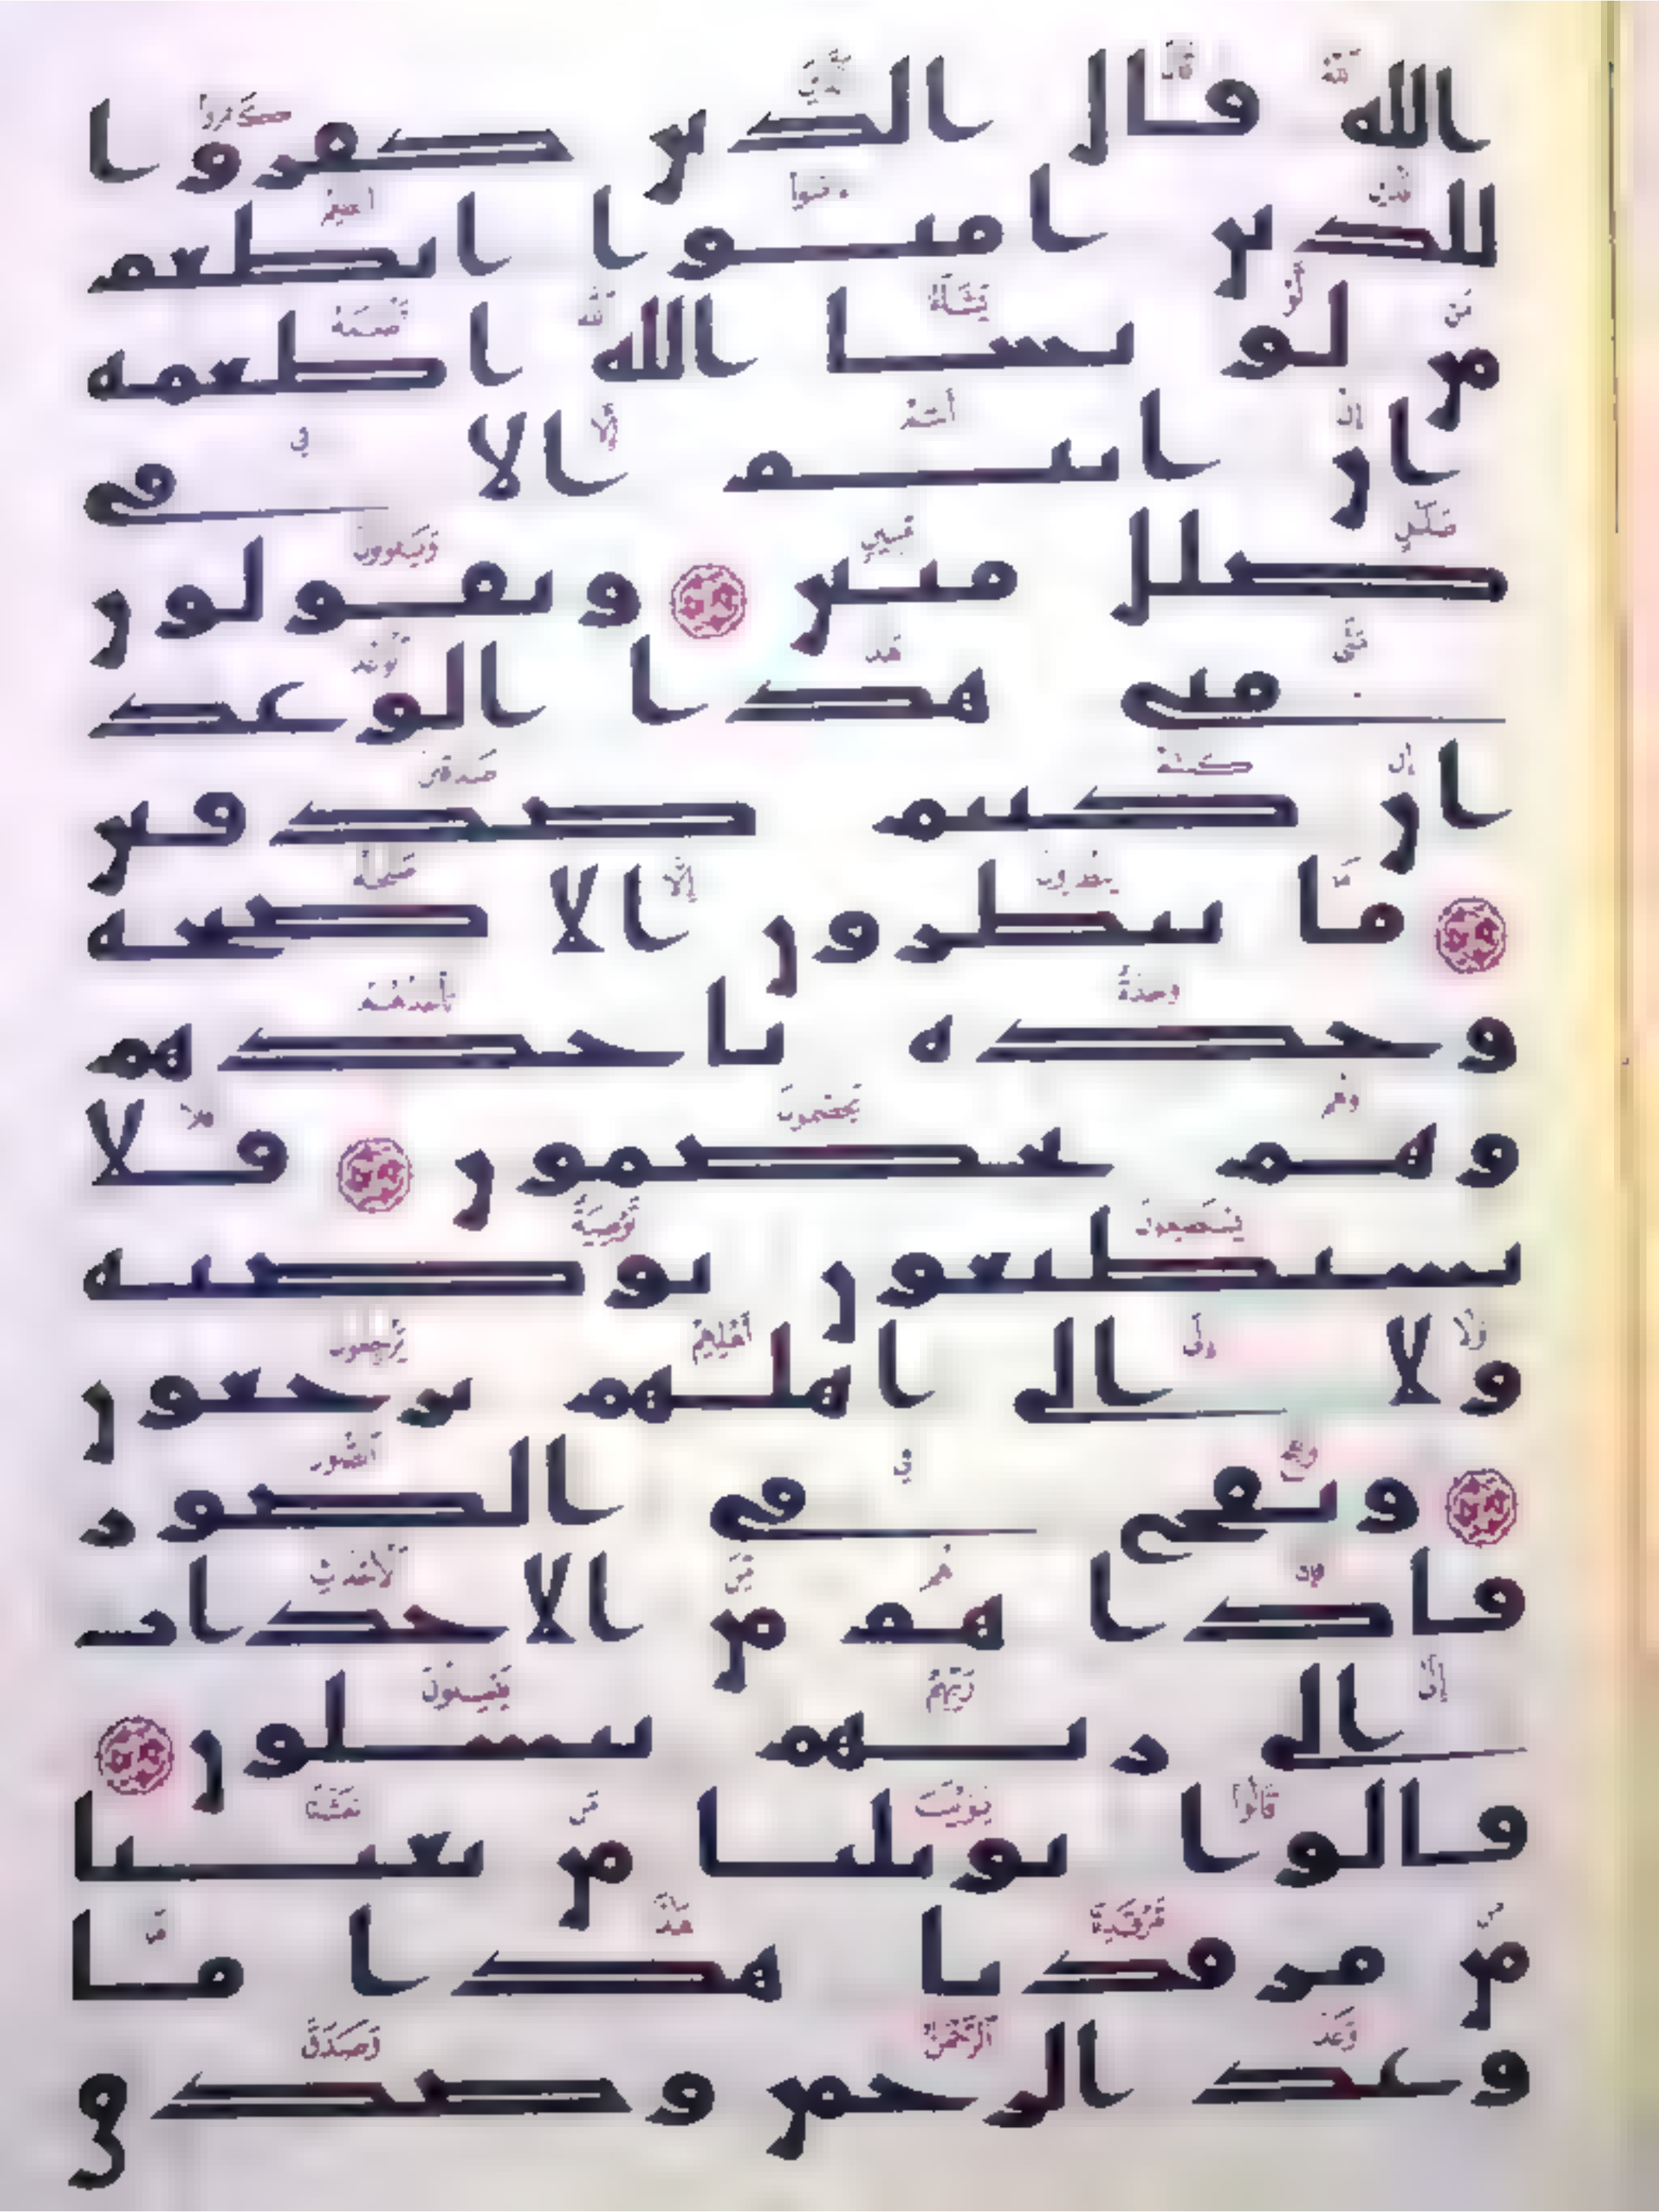 الله قال الذين كفروا
للذين امنوا انطعم
من لو يشا الله اطعمه
ان انتم الا في
ضلل مبين ويقولون
متى هذا الوعد
ان كنتم صدقين
ما ينظرون الا صيحة
وحدة تاخذهم
وهم يخصمون فلا
يستطيعون توصية
ولا الى اهلهم يرجعون
ونفخ في الصور
فاذا هم من الاجداث
الى ربهم ينسلون
قالوا يويلنا من بعثنا
من مرقدنا هذا ما
وعد الرحمن وصدق